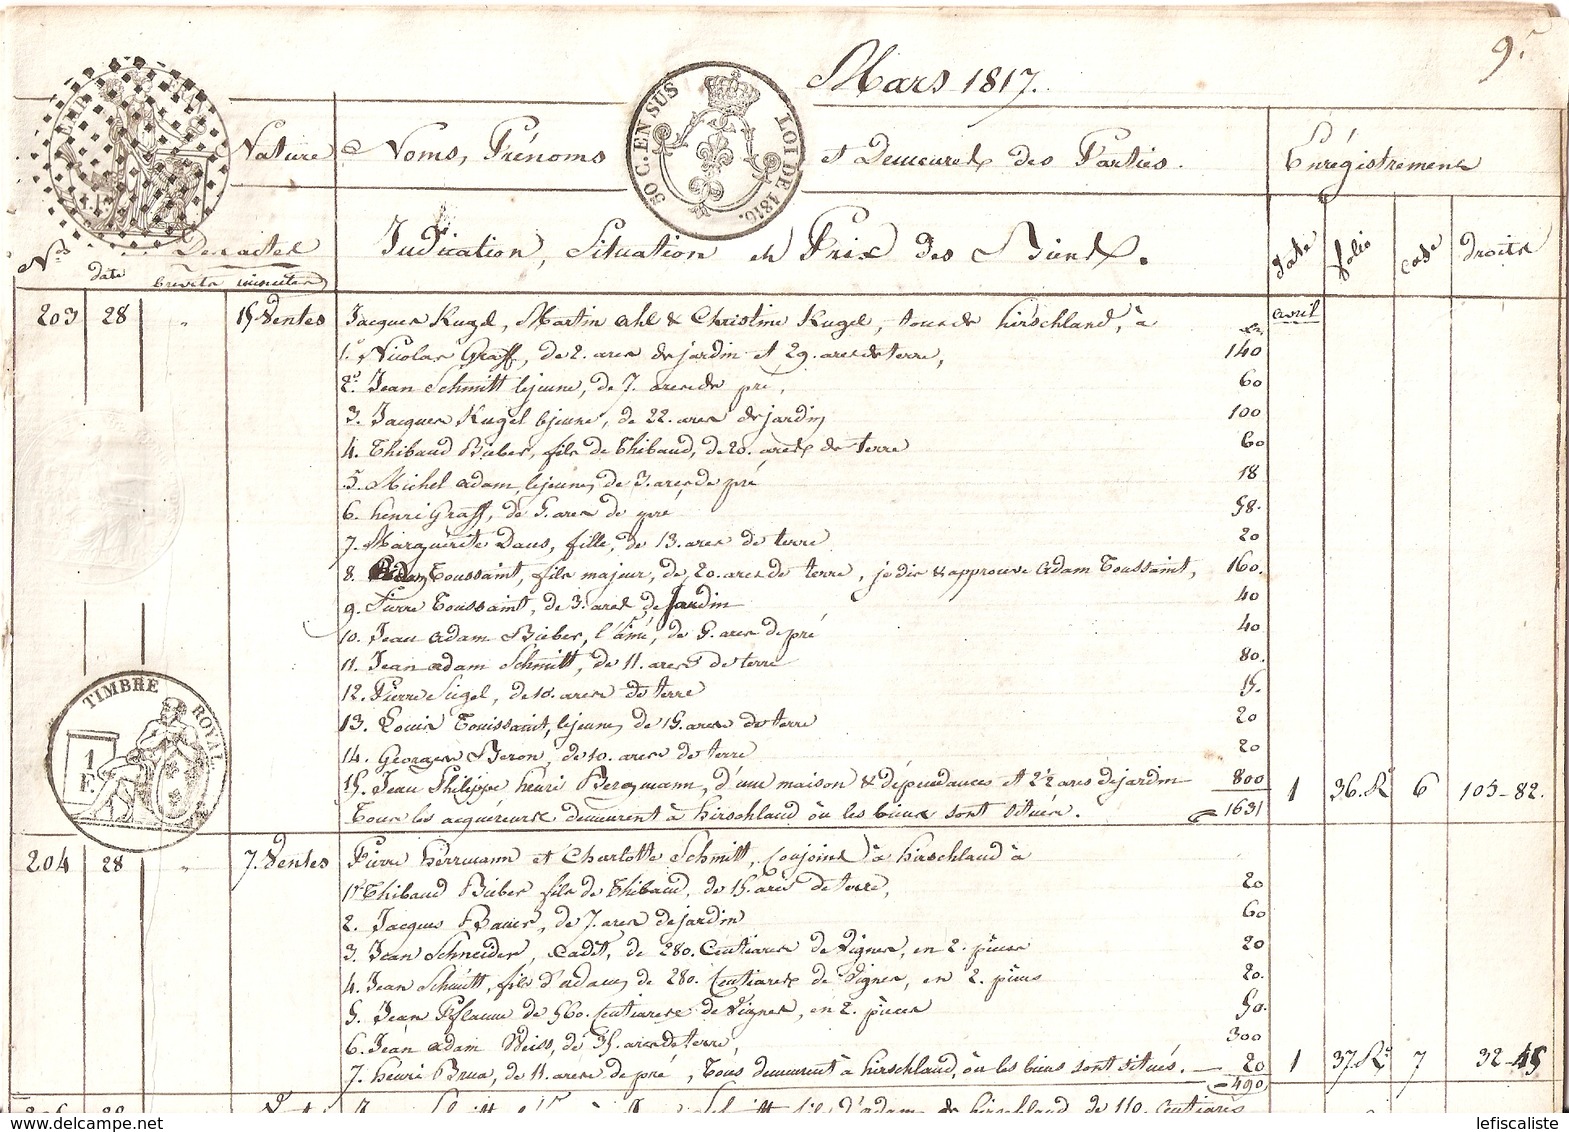 9.
Mars 1817.
EMP. FRAN
50 C. EN SUS LOI DE 1816.
Nature Noms, Prénoms et Demeures des Parties. Enrégistrement
Nos date Des actes Indication, Situation et Prix des Biens. date folio case droits
brevets minutes
203 28 " 15 Ventes Jacques Kugel, Martin Ahl & Christine Kugel, tous de hirschland, à avril
1.° Nicolas Graff, de 2. ares de jardin et 29. ares de terre, 140
2.° Jean Schmitt lejeune, de 7. ares de pré, 60
3. Jacques Kugel lejeune, de 22. ares de jardin 100
4. Thibaud Bieber, fils de Thibaud, de 20. ares de terre 60
5. Michel adam, lejeune, de 3. ares de pré 18
6. henri Graff, de 5. ares de pré 58.
7. Marguérite Daus, fille, de 13. ares de terre 20
8. Adam Toussaint, fils majeur, de 20. ares de terre, je dis & approuve Adam Toussaint, 160.
9. Pierre Toussaint, de 3. ares de Jardin 40
10. Jean adam Bieber, l'ainé, de 5. ares de pré 40
11. Jean adam Schmitt, de 11. ares de terre 80.
12. Pierre Sugel, de 10. ares de terre 15.
13. Louis Toussaint, lejeune, de 15. ares de terre 20
14. Georges Beron, de 10. ares de terre 20
15. Jean Philippe henri Bergmann, d'une maison & dépendances et 2½ ares de jardin 800 1 36. R° 6 103-82.
Tous les acquéreurs demeurent à hirschland où les biens sont situés. 1631
TIMBRE ROYAL
1 F.
204 28 " 7. Ventes Pierre herrmann et Charlotte Schmitt, Conjoints à hirschland à
1° Thibaud Bieber fils de Thibaud, de 15. ares de terre, 20
2. Jacques Bauer, de 7. ares de jardin 60
3. Jean Schneider, Cadet, de 280. Centiares de Vignes, en 2. pièces 20
4. Jean Schmitt, fils d'adam, de 280. Centiares de Vignes, en 2. pièces 20.
5. Jean Pflaume de 560. Centiares de Vignes, en 2. pièces 50.
6. Jean adam Weiss, de 35. ares de terre, 300
7. henri Brua, de 11. ares de pré, Tous demeurent à hirschland, où les biens sont situés. 20 1 37. R° 7 32-45
490
Schmitt fils d'adam de hirschland de 110. Centiares
lefiscaliste
www.delcampe.net